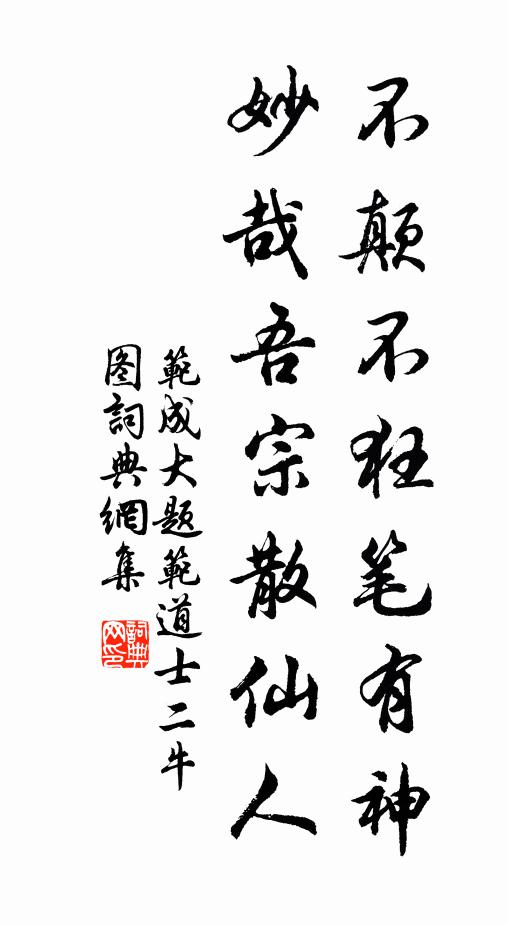 不颠不狂笔有神
妙哉吾宗散仙人
範成大题範道士二牛
图詞典網集
詞典网印